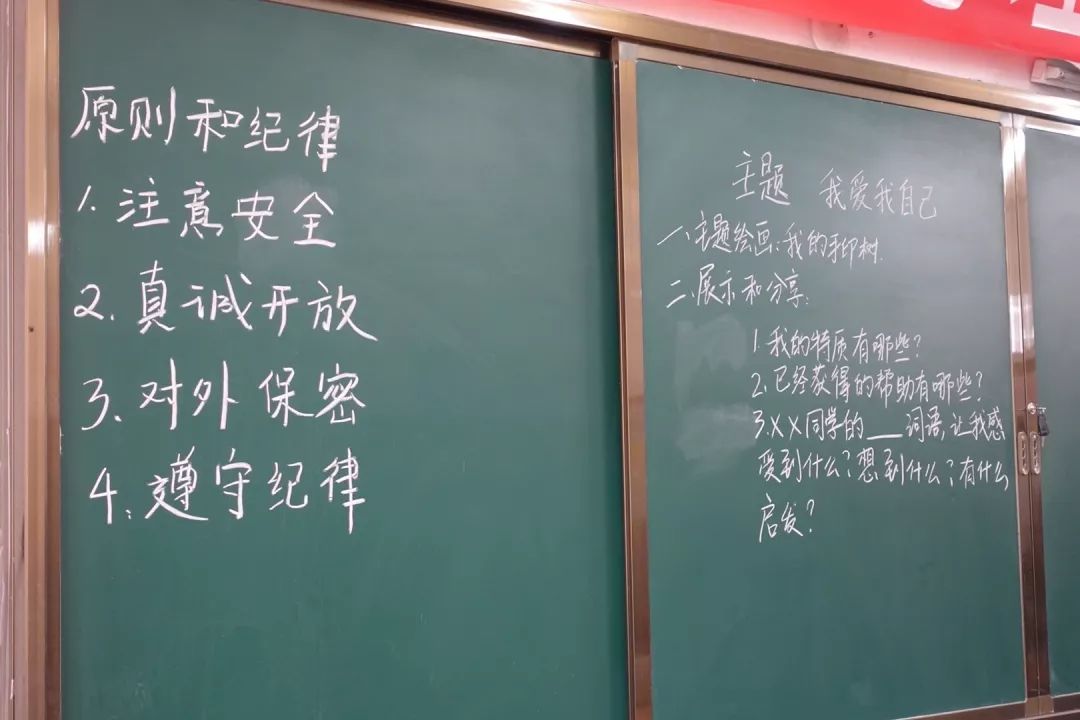 原则和纪律
1.注意安全
2.真诚开放
3、对外保密
4、遵守纪律
主题 我爱我自己
一、主题绘画:我的手印树.
二、展示和分享:
1.我的特质有哪些?
2.已经获得的帮助有哪些?
3.XX同学的___词语,让我感
受到什么?想到什么?有什么
启发?